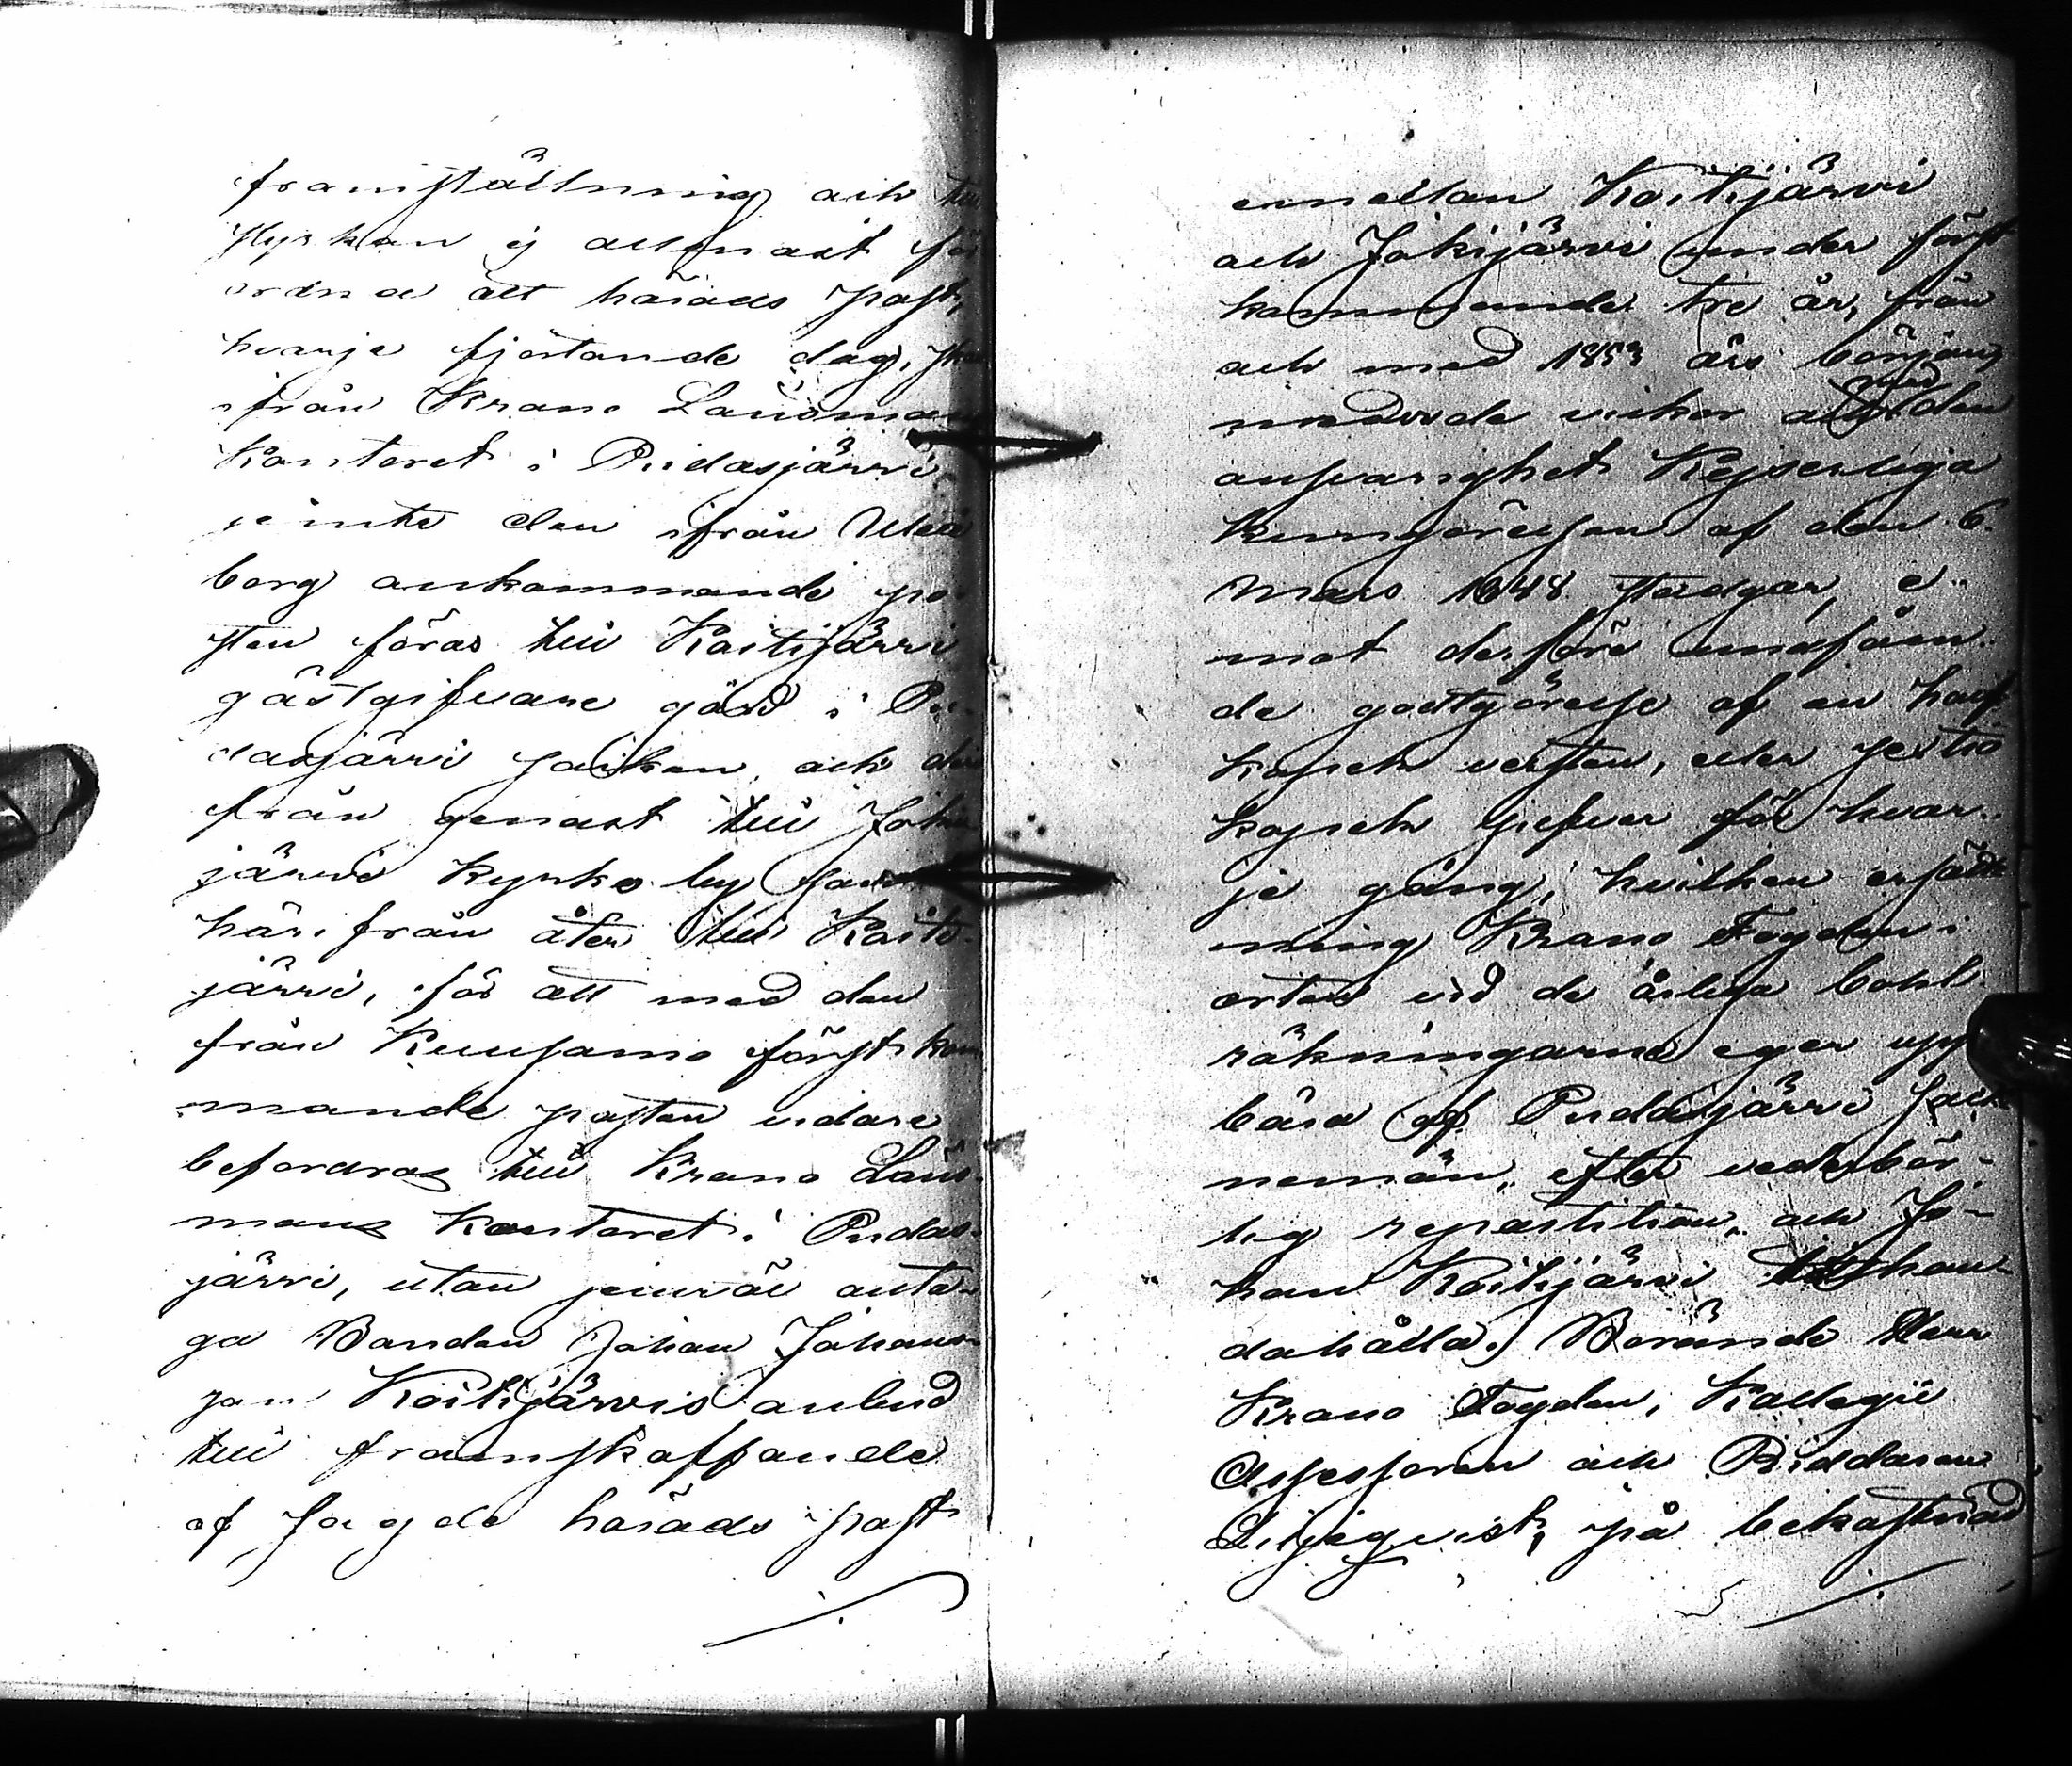 framställning och
styrkan ej allenast för
ordna att härads post,
hvarje fjortonde dag, ska
ifrån Krono Länsman
Kontoret i Pudasjärvi
jemte den ifrån Uleå
borg ankommande po
sten föras till Koitijärvi
gästgifvare gård i Pu-
dasjärvi socken, och der
från genast till Joki
järvi kyrko by samt
härifrån åter till Koiti-
järvi, för att med den
från Kuusamo först kom
mande posten vidare
befordras till Krono Läns-
mans kontoret i Pudas-
järvi, utan jemväl anta-
ga Bonden Johan Johans-
son Koitijärvis anbud
till framskaffande
af sagde härads post
emellan Koitijärvi
och Jokijärvi under först
kommande tre år, från
och med 1853 års början
med den
ansvarighet Kejserliga
Kungörelsen af den 6.
Mars 1848 stadgar, e-
mot derföre undfåen-
de godtgörelse af en half
kopek versten, eller sextio
kopek silfver för hvar-
je gång, hvilken ersätt
ning Krono Fogden i
orten vid de årliga bohl
räkningarne eger upp
bära af Pudasjärvi sock
nemän, efter vederbör-
lig repartition, och Jo-
han Koitijärvi tillhan-
dahålla. Börande Herr
Krono Fogden, Kollegii
Assessoren och Riddaren
Liljeqvist, på bekostnad